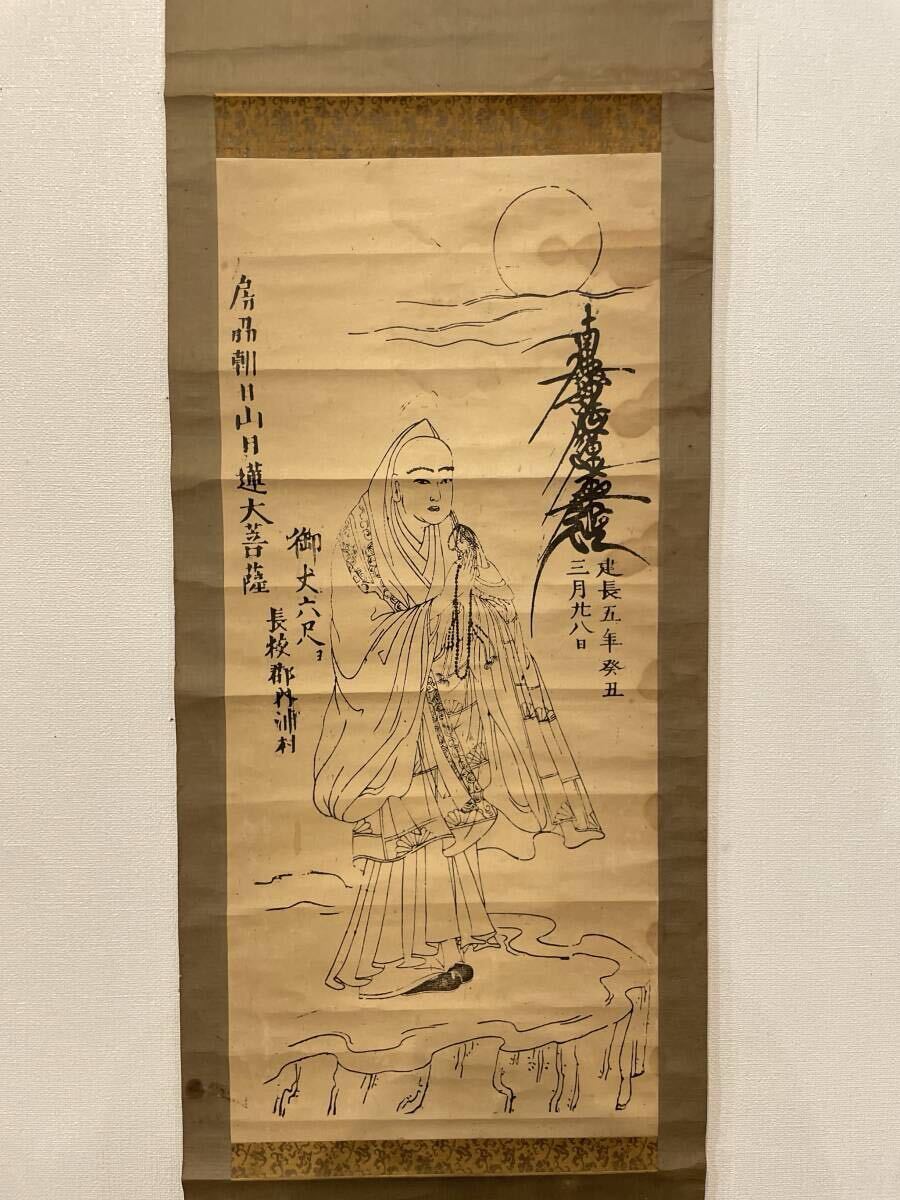 南無妙法蓮華経
建長五年癸丑
三月廿八日
御丈六尺ヨ
長狭郡内浦村
房州朝日山日蓮大菩薩